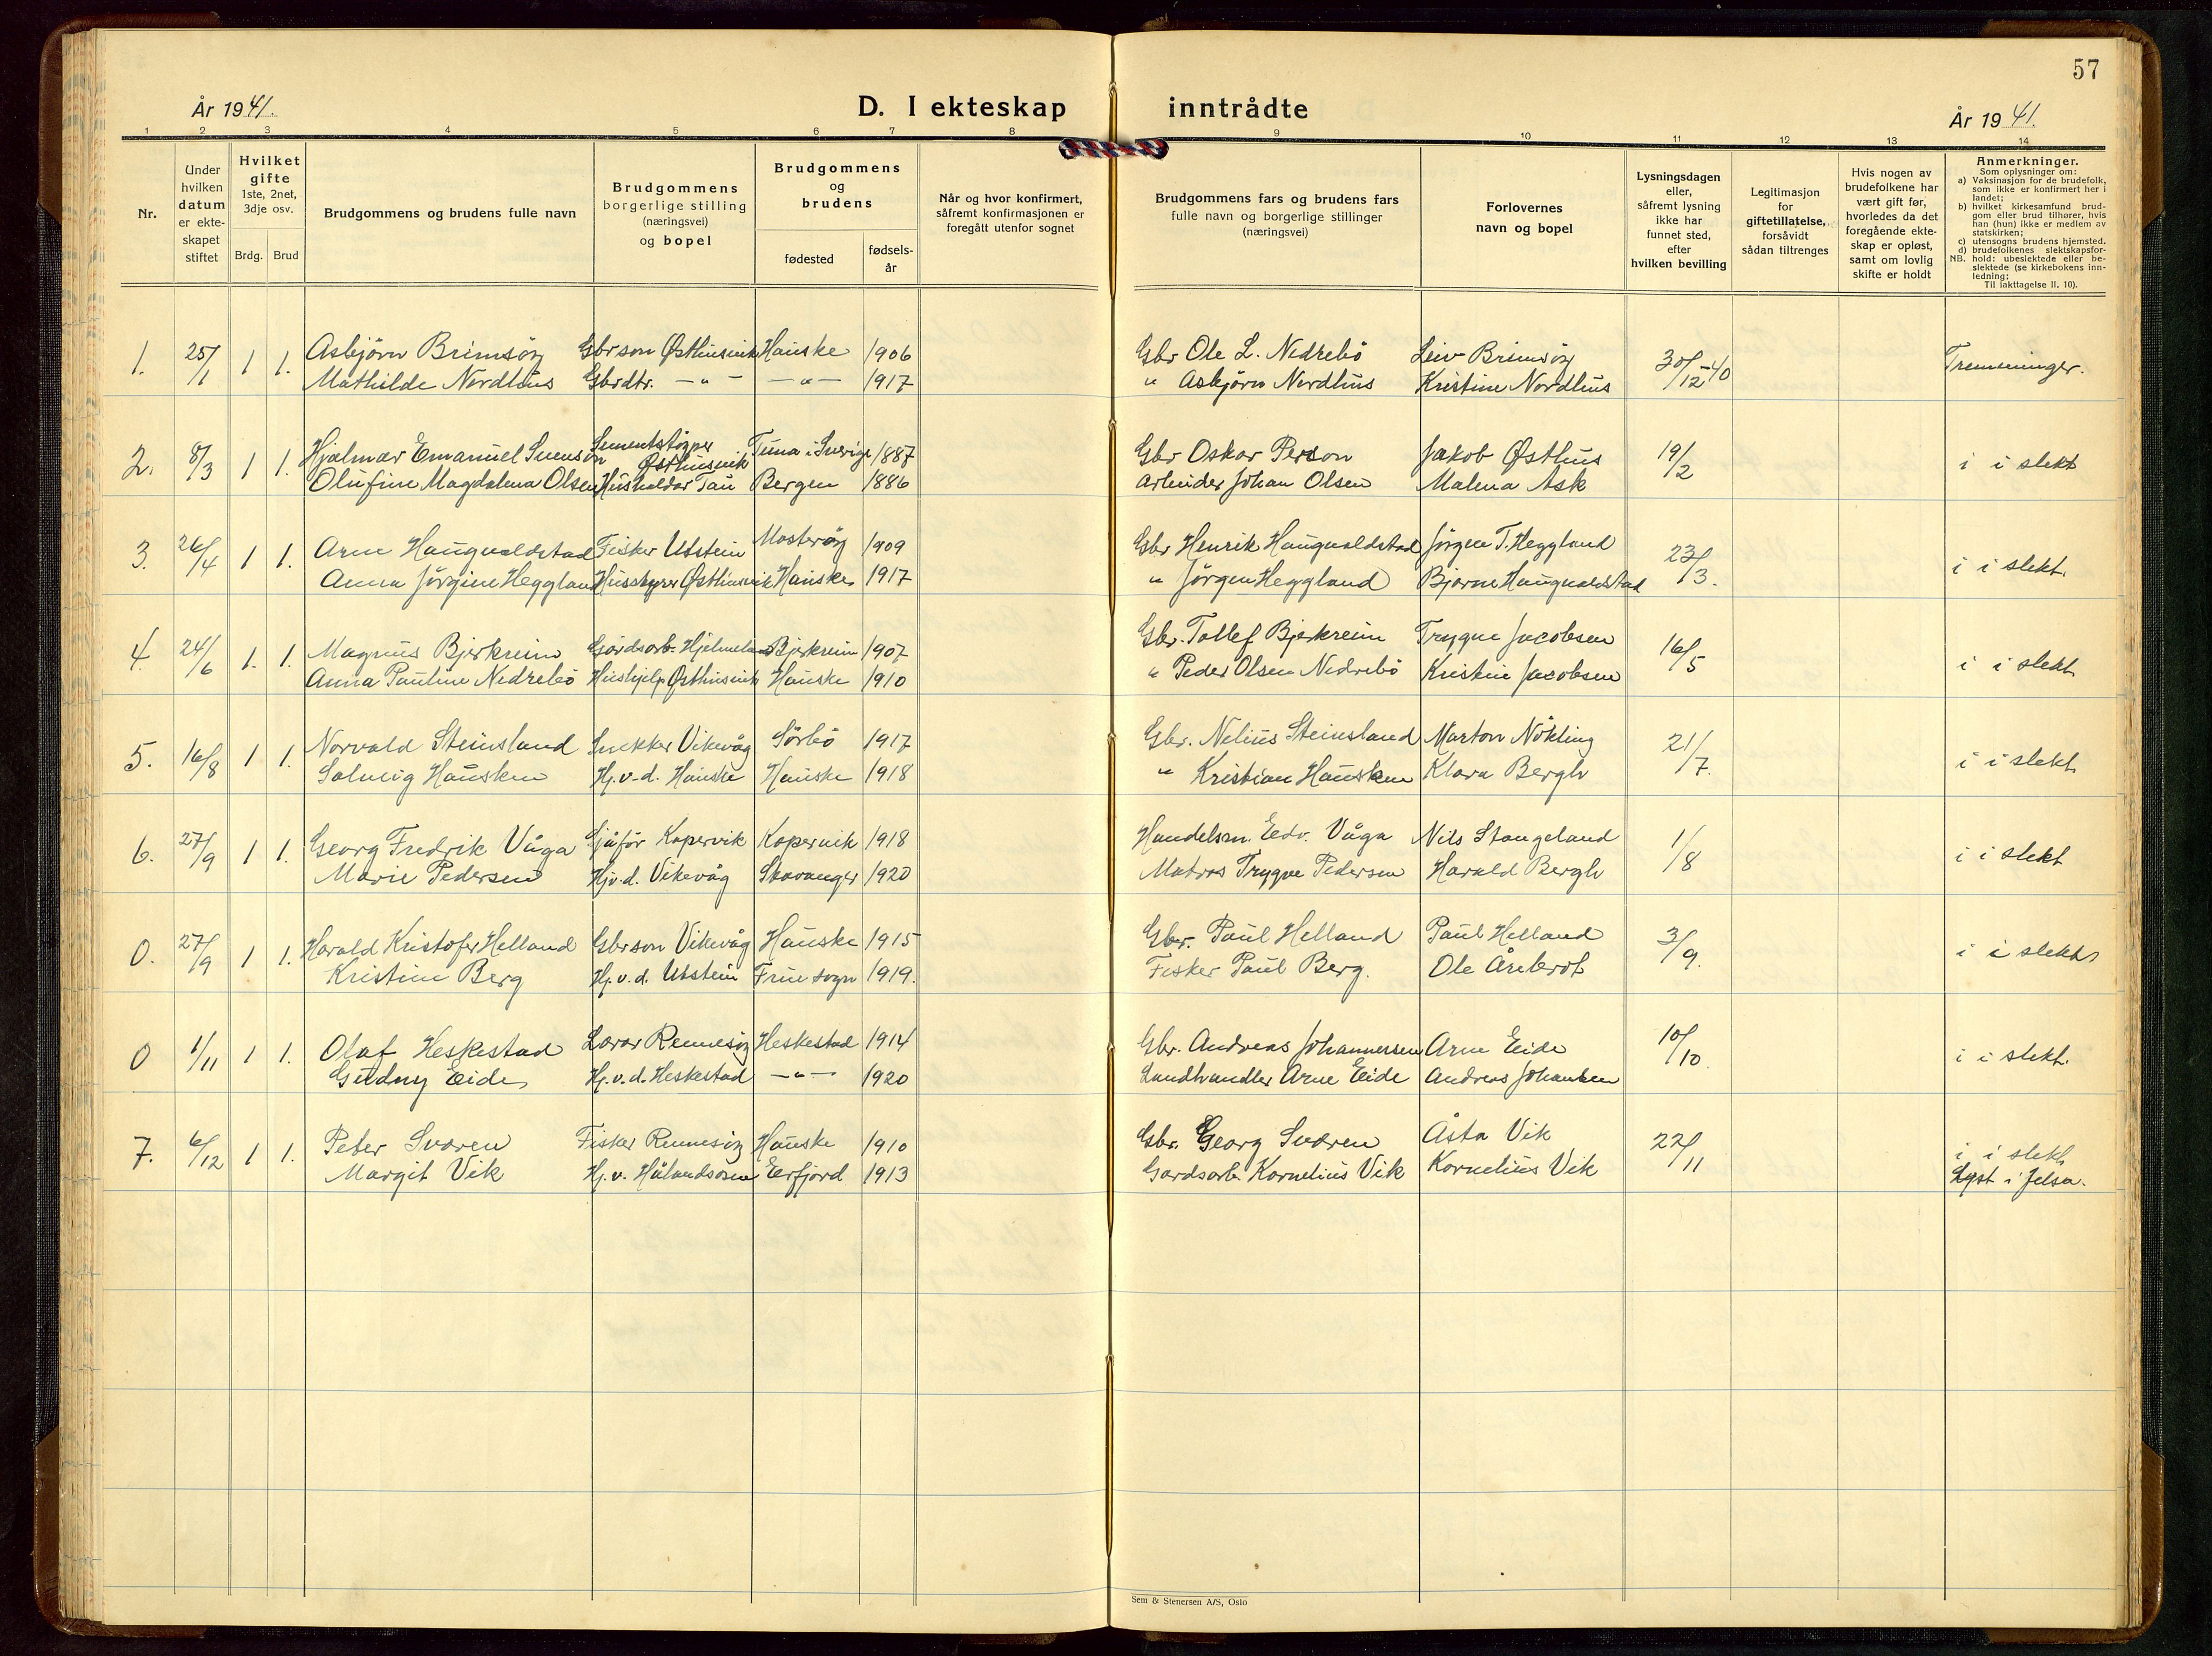 57
År 1941.
D. I ekteskap inntrådte
År 1941.
1 2 3 4 5 6 7 8 9 10 11 12 13 14
Nr.
Under
hvilken
datum
er ekte-
skapet
stiftet
Hvilket
gifte
1ste, 2net,
3dje osv.
Brdg. Brud
Brudgommens og brudens fulle navn
Brudgommens
borgerlige stilling
(næringsvei)
og bopel
Brudgommens
og
brudens
fødested
fødsels-
år
Når og hvor konfirmert,
såfremt konfirmasjonen er
foregått utenfor sognet
Brudgommens fars og brudens fars
fulle navn og borgerlige stillinger
(næringsvei)
Forlovernes
navn og bopel
Lysningsdagen
eller,
såfremt lysning
ikke har
funnet sted,
efter
hvilken bevilling
Legitimasjon
for
giftetillatelse,
forsåvidt
sådan tiltrenges
Hvis nogen av
brudefolkene har
vært gift før,
hvorledes da det
foregående ekte-
skap er opløst,
samt om lovlig
skifte er holdt
Anmerkninger.
Som oplysninger om:
a) Vaksinasjon for de brudefolk,
som ikke er konfirmert her i
landet;
b) hvilket kirkesamfund brud-
gom eller brud tilhører, hvis
han (hun) ikke er medlem av
statskirken;
c) utensogns brudens hjemsted.
d) brudefolkenes slektskapsfor-
NB. hold: ubeslektede eller be-
slektede (se kirkebokens inn-
ledning;
Til iakttagelse II. 10).
1. 25/1 1 1. Asbjörn Brimsöy Gbrson Østhusvik Hauske 1906 Gbr Ole L. Nedrebö Leiv Brimsöy 30/12-40 Tremenninger.
Mathilde Nordhus Gbrdtr. —"— —"— 1917 " Asbjörn Nordhus Kristine Nordhus
2. 8/3 1 1. Hjalmar Emanuel Svenson Sementstöper Østhusvik Tuna i Sverige 1887 Gbr Oskar Person Jakob Østhus 19/2 i i slekt
Olufine Magdalena Olsen Husholder Tau Bergen 1886 Arbeider Johan Olsen Malena Ask
3. 26/4 1 1. Arne Haugvaldstad Fisker Utstein Mosteröy 1909 Gbr Henrik Haugvaldstad Jörgen T. Heggland 23/3. i i slekt.
Anna Jörgine Heggland Husstyrer Østhusvik Hauske 1917 " Jörgen Heggland Bjarne Haugvaldstad
4. 24/6 1. 1. Magnus Bjerkreim Gårdsarb. Hjelmeland Bjerkreim 1907 Gbr. Tollef Bjerkreim Trygve Jacobsen 16/5 i i slekt
Anna Pauline Nedrebö Hushjelp Østhusvik Hauske 1910 " Peder Olsen Nedrebö Kristine Jacobsen
5. 16/8 1 1. Norvald Steinsland Snekker Vikevåg Sörbö 1917 Gbr. Nelius Steinsland Marton Nökling 21/7. i i slekt
Solveig Hausken Hj.v.d. Hauske Hauske 1918 " Kristian Hausken Klara Bergh
6. 27/9 1 1. Georg Fredrik Våga Sjåför Kopervik Kopervik 1918 Handelsm. Edv. Våga Nils Stangeland 1/8 i i slekt
Marie Pedersen Hj.v.d. Vikevåg Stavanger 1920 Matros Trygve Pedersen Harald Bergh
0. 27/9 1 1. Harald Kristofer Helland Gbrson Vikevåg Hauske 1915 Gbr. Paul Helland Paul Helland 3/9. i i slekt
Kristine Berg Hj.v.d. Utstein Frue sogn 1919. Fisker Paul Berg. Ole Årebrot
0 1/11 1 1. Olaf Heskestad Lærer Rennesöy Heskestad 1914 Gbr. Andreas Johannessen Arne Eide 10/10. i i slekt.
Gudny Eide Hj.v.d. Heskestad —"— 1920 Landhandler Arne Eide Andreas Johansen
7. 6/12 1 1. Peter Sværen Fisker Rennesöy Hauske 1910 Gbr. Georg Sværen Åsta Vik 22/11 i i slekt
Margit Vik Hj.v. Hålandsosen Eerfjord 1913 Gardsarb. Kornelius Vik Kornelius Vik Lyst i Jelsa.
Sem & Stenersen A/S, Oslo